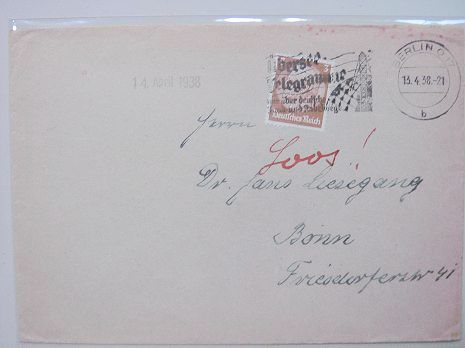 14. April 1938
Übersee
Telegramme
über deutsche
3
Deutsches Reich
BERLIN O 17
13.4.38.-21
b
Herrn
Loos!
Dr. Hans Liesegang
Bonn
Friesdorferstr 41